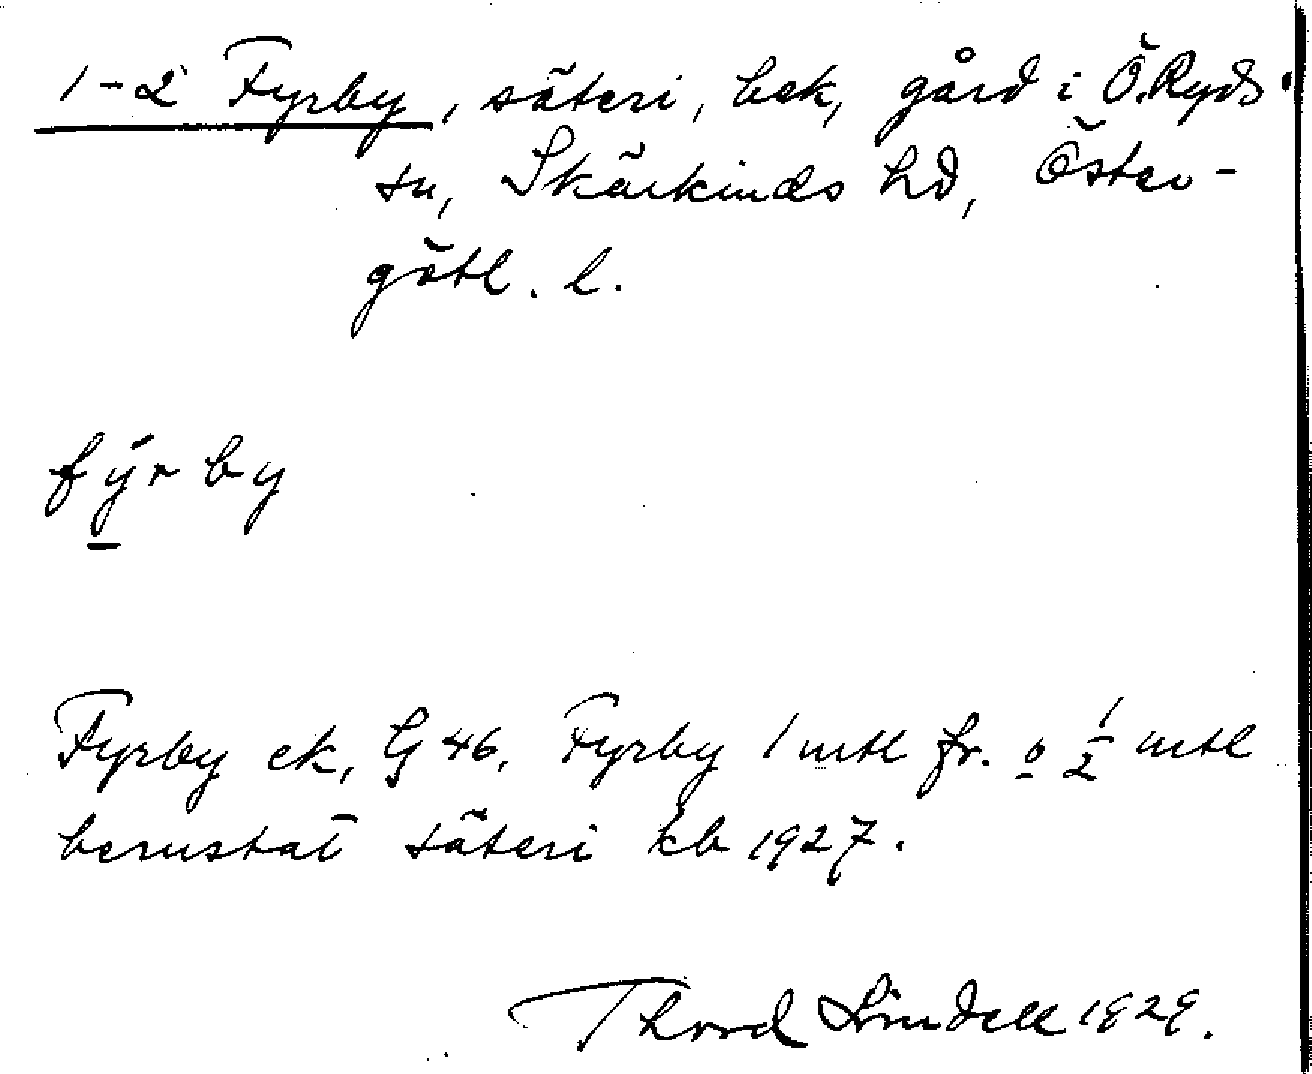 1-2 Fyrby, säteri, bek, gård i Ö. Ryds
sn, Skärkinds hd, Öster-
götl. l.
fý̱rby
Fyrby ek, G 46, Fyrby 1 mtl fr. o 1/2 mtl
berustat säteri kb 1927.
Thord Lindell 1929.